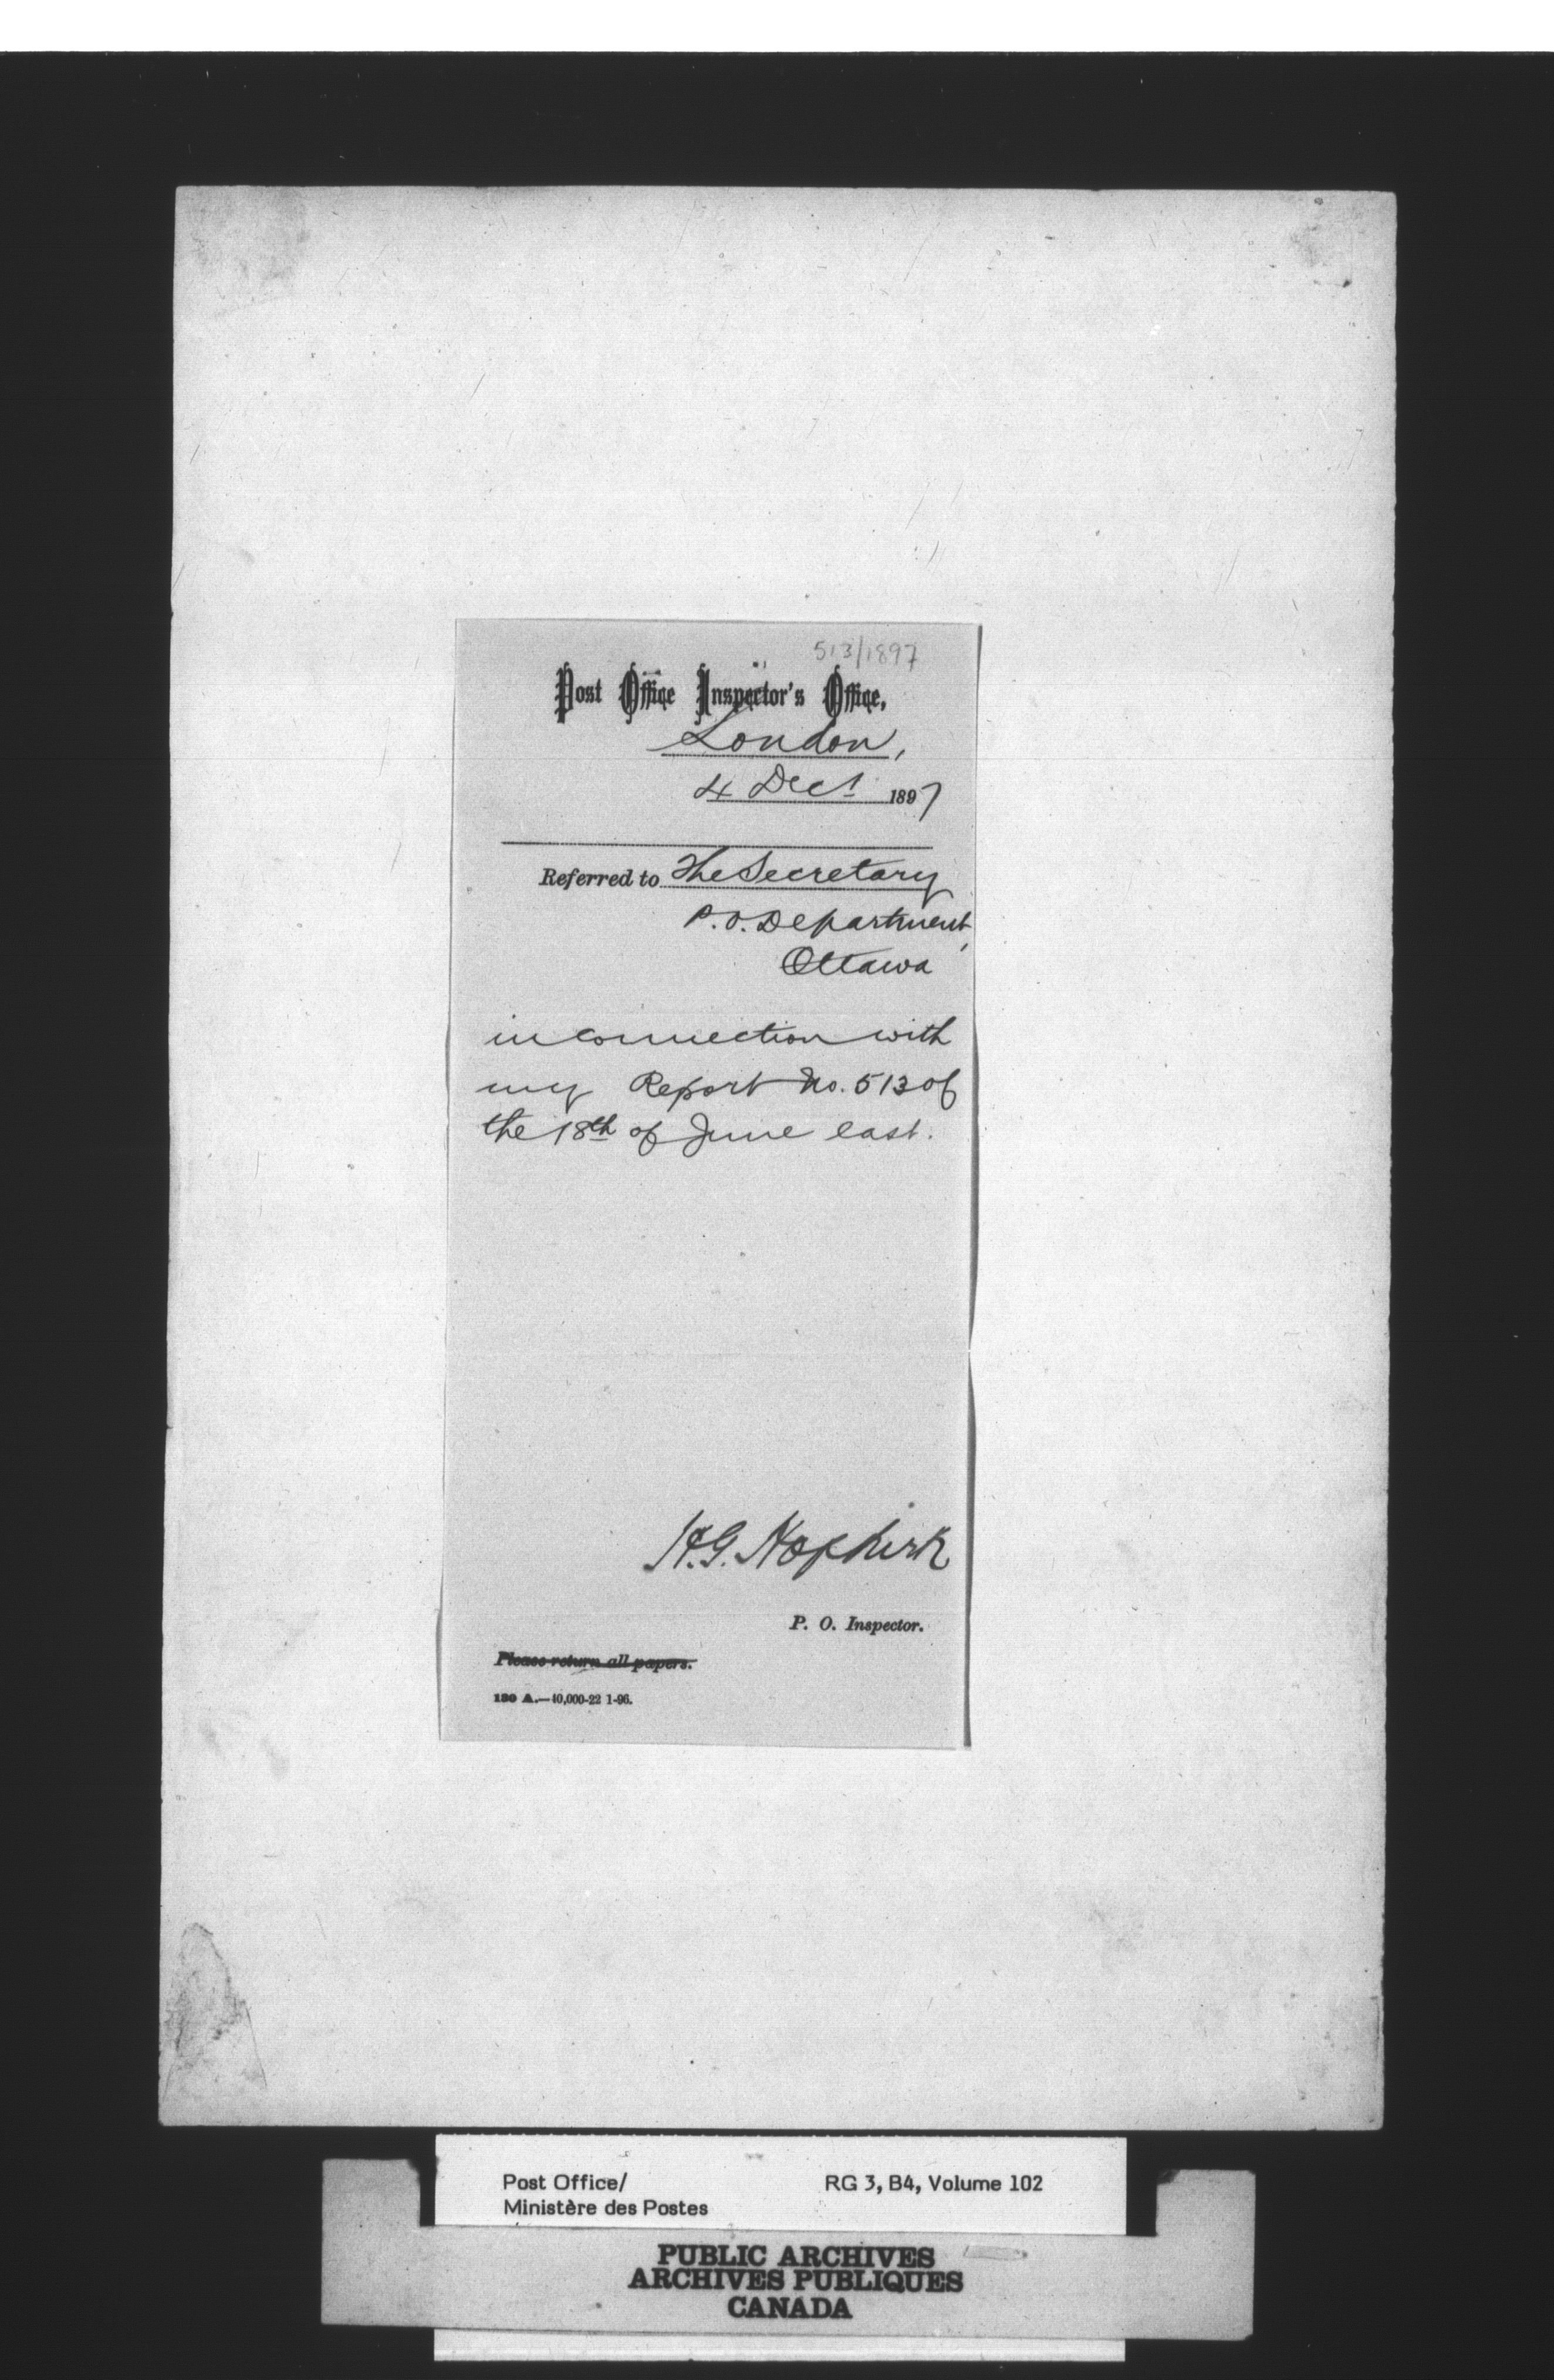 513/1897
Post Office Inspector's Office,
London,
4 Decr 1897
Referred to The Secretary
P.O. Department,
Ottawa
in connection with
my Report No. 513 of
the 18th of June last.
H.G. Hopkirk
P. O. Inspector.
Please return all papers.
130 A.—40,000-22 1-96.
Post Office/ RG 3, B4, Volume 102
Ministère des Postes
PUBLIC ARCHIVES
ARCHIVES PUBLIQUES
CANADA